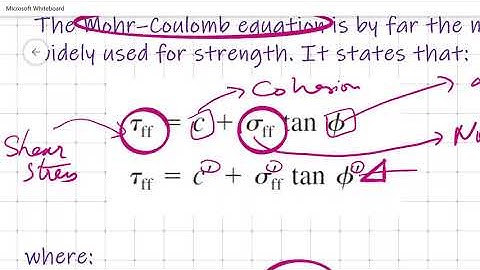 Microsoft Whiteboard
The Mohr-Coulomb equation is by far the m
widely used for strength. It states that:
Cohesion
τff = c + σff tan ϕ
Shear
Stress
τff = c' + σ'ff tan ϕ'
where: